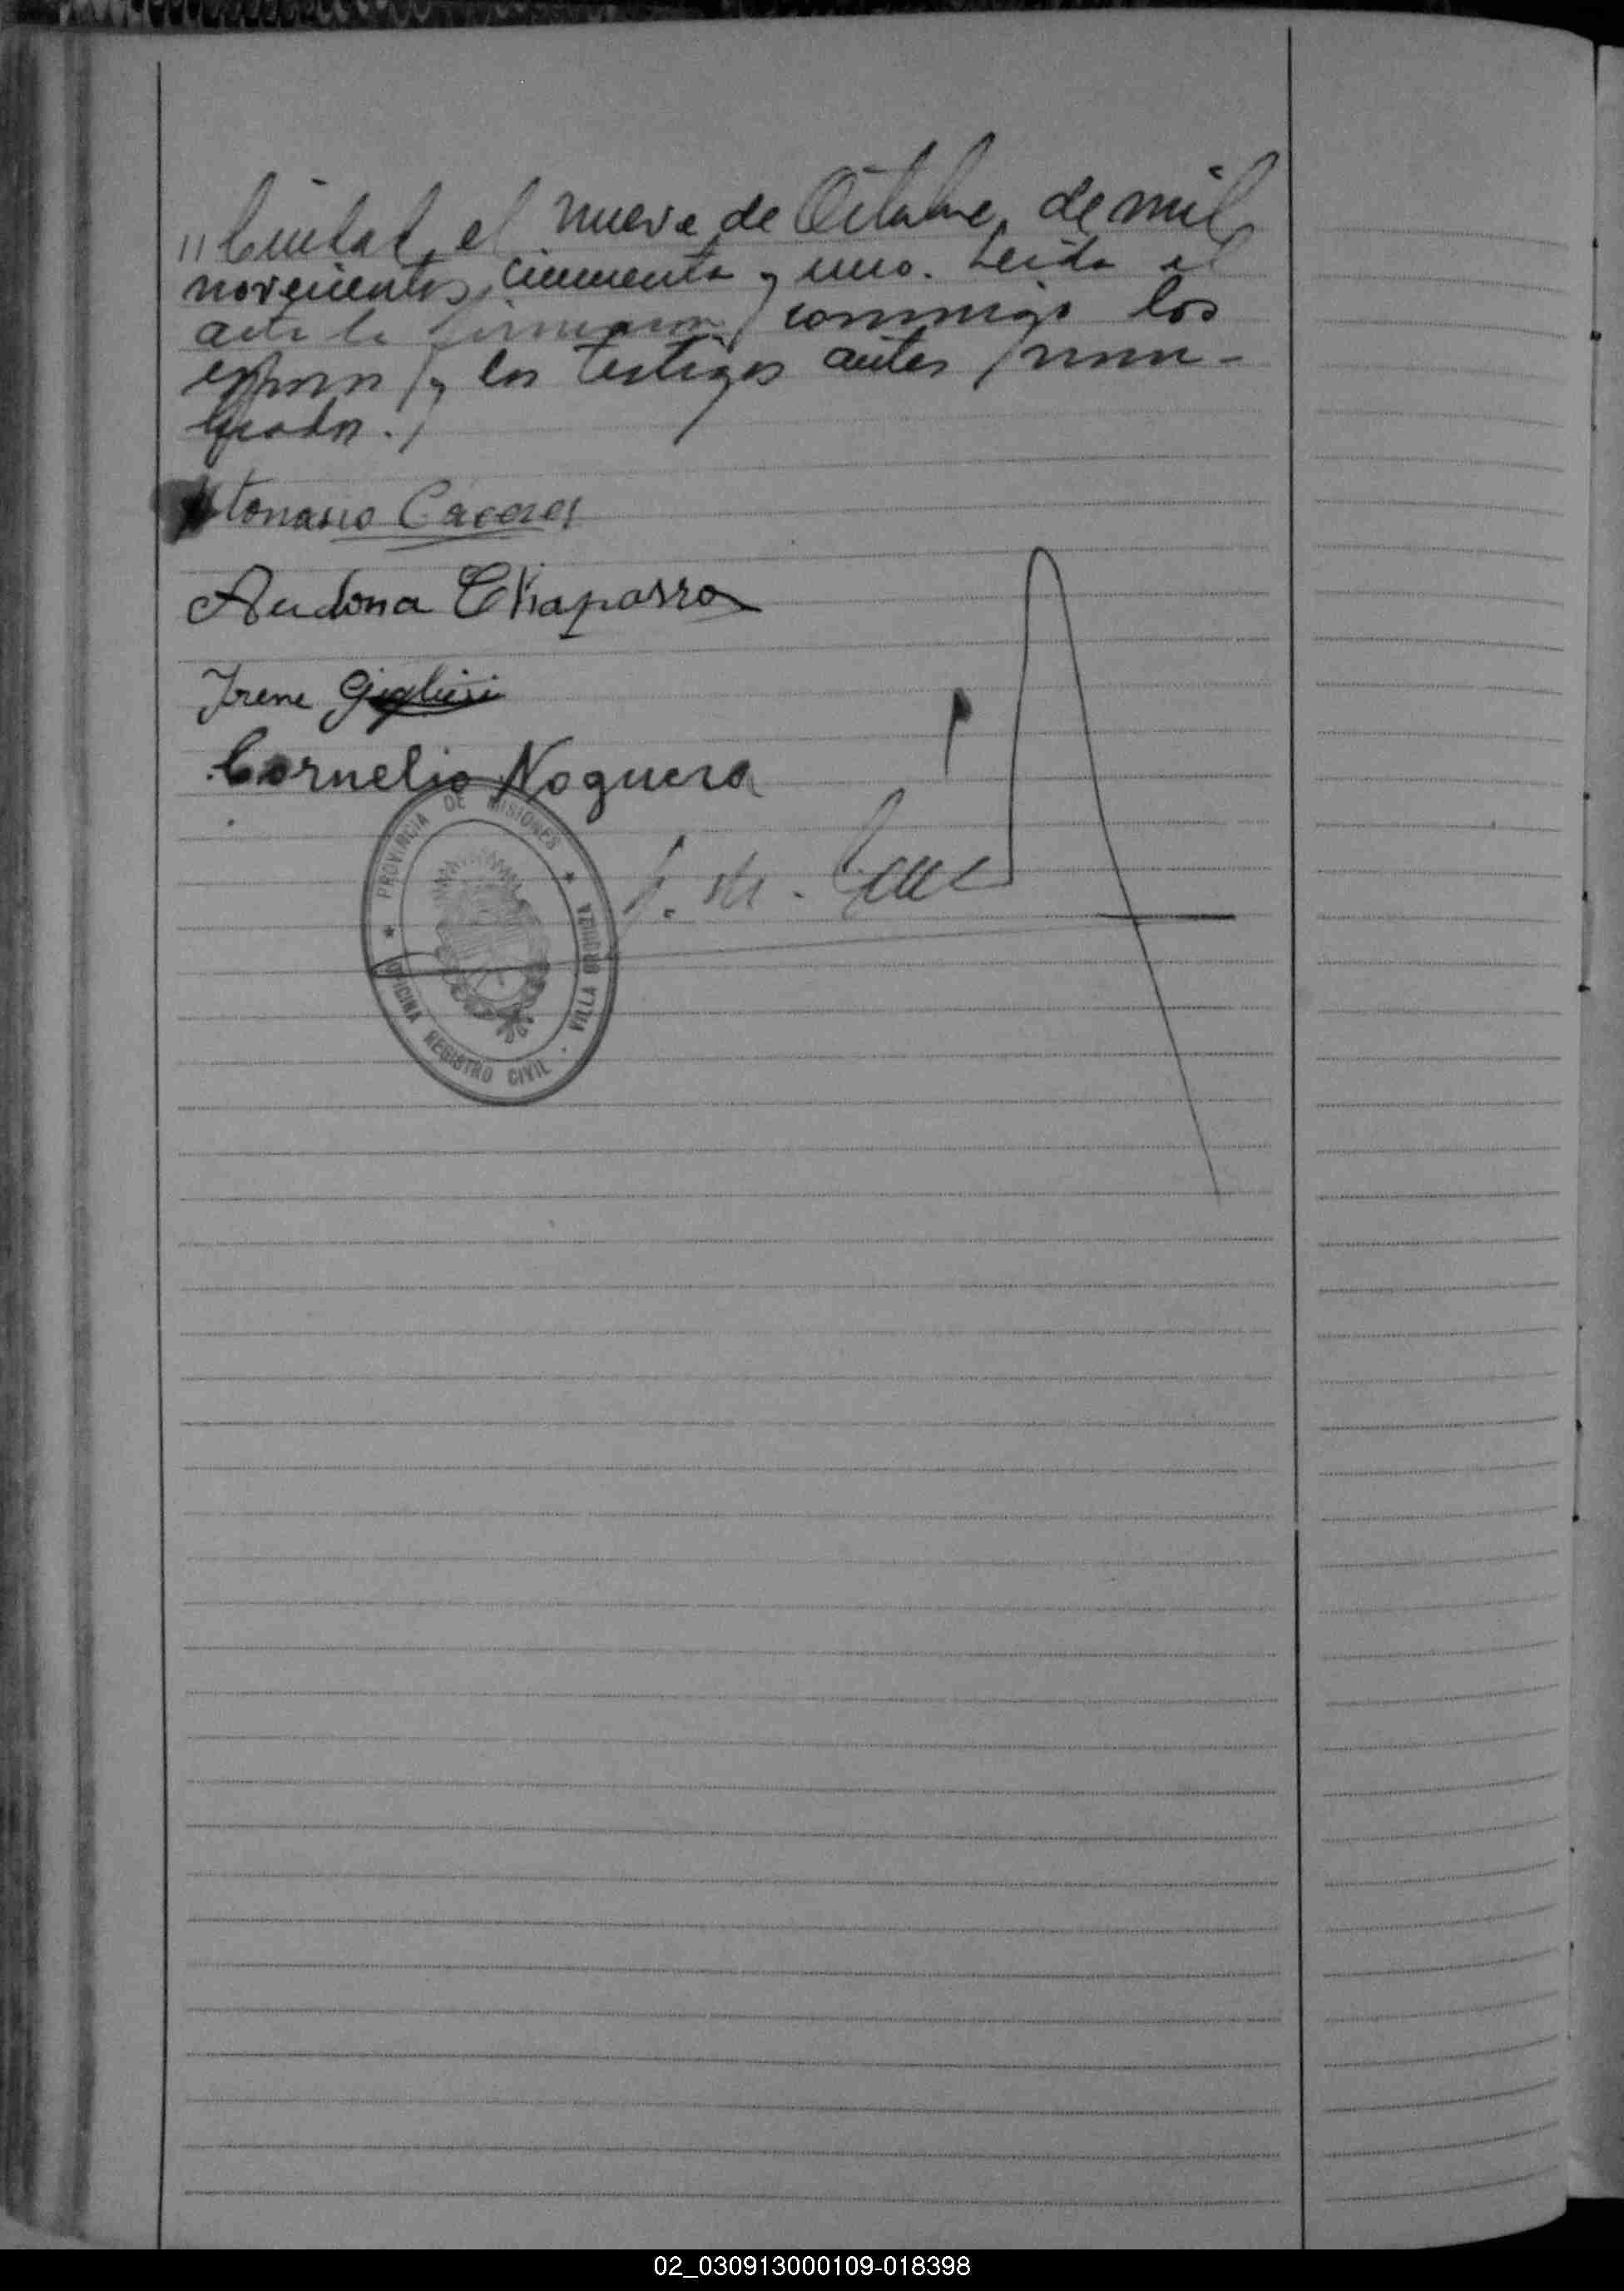 " Ciudad, el nueve de Octubre, de mil
novecientos cincuenta y uno. Leida el
acta la firmaron conmigo los
esposos y los testigos antes nom-
brados.
Atanasio Caceres
Audona Chaparro
Irene
Cornelio Noguera
J. M.
★ PROVINCIA DE MISIONES ★
OFICINA REGISTRO CIVIL · VILLA URQUIZA
02_030913000109-018398